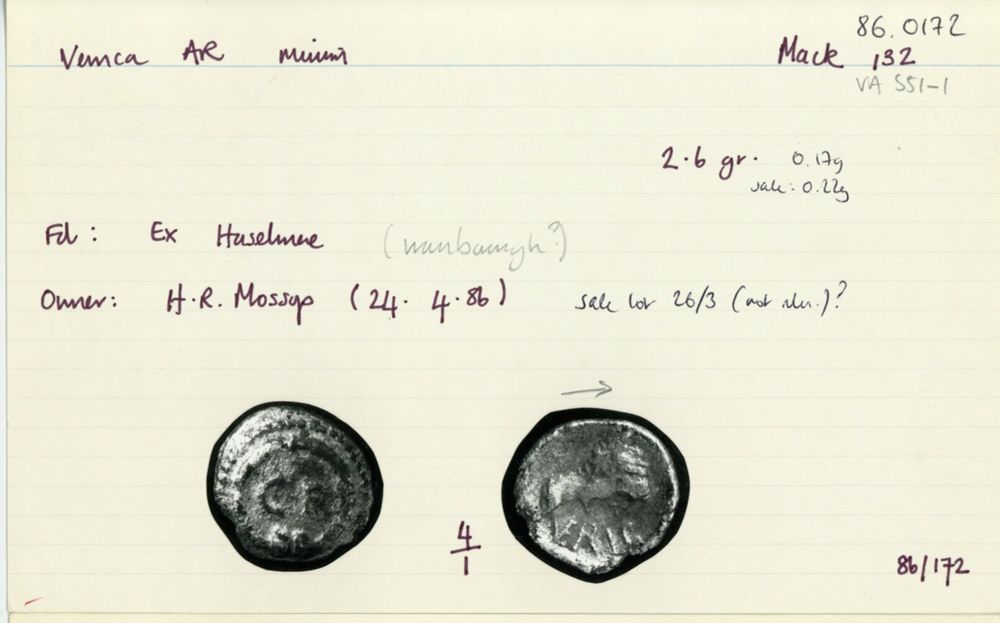 86.0172
Verica AR minim Mack 132
VA 551-1
2.6 gr. 0.17g
sale: 0.22g
Fd: Ex Haslemere (wanborough?)
Owner: H.R. Mossop (24. 4.86) sale lot 26/3 (not illus.)?
4
1
86/172